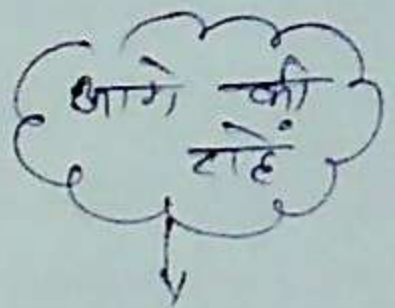 आगे की
राहें